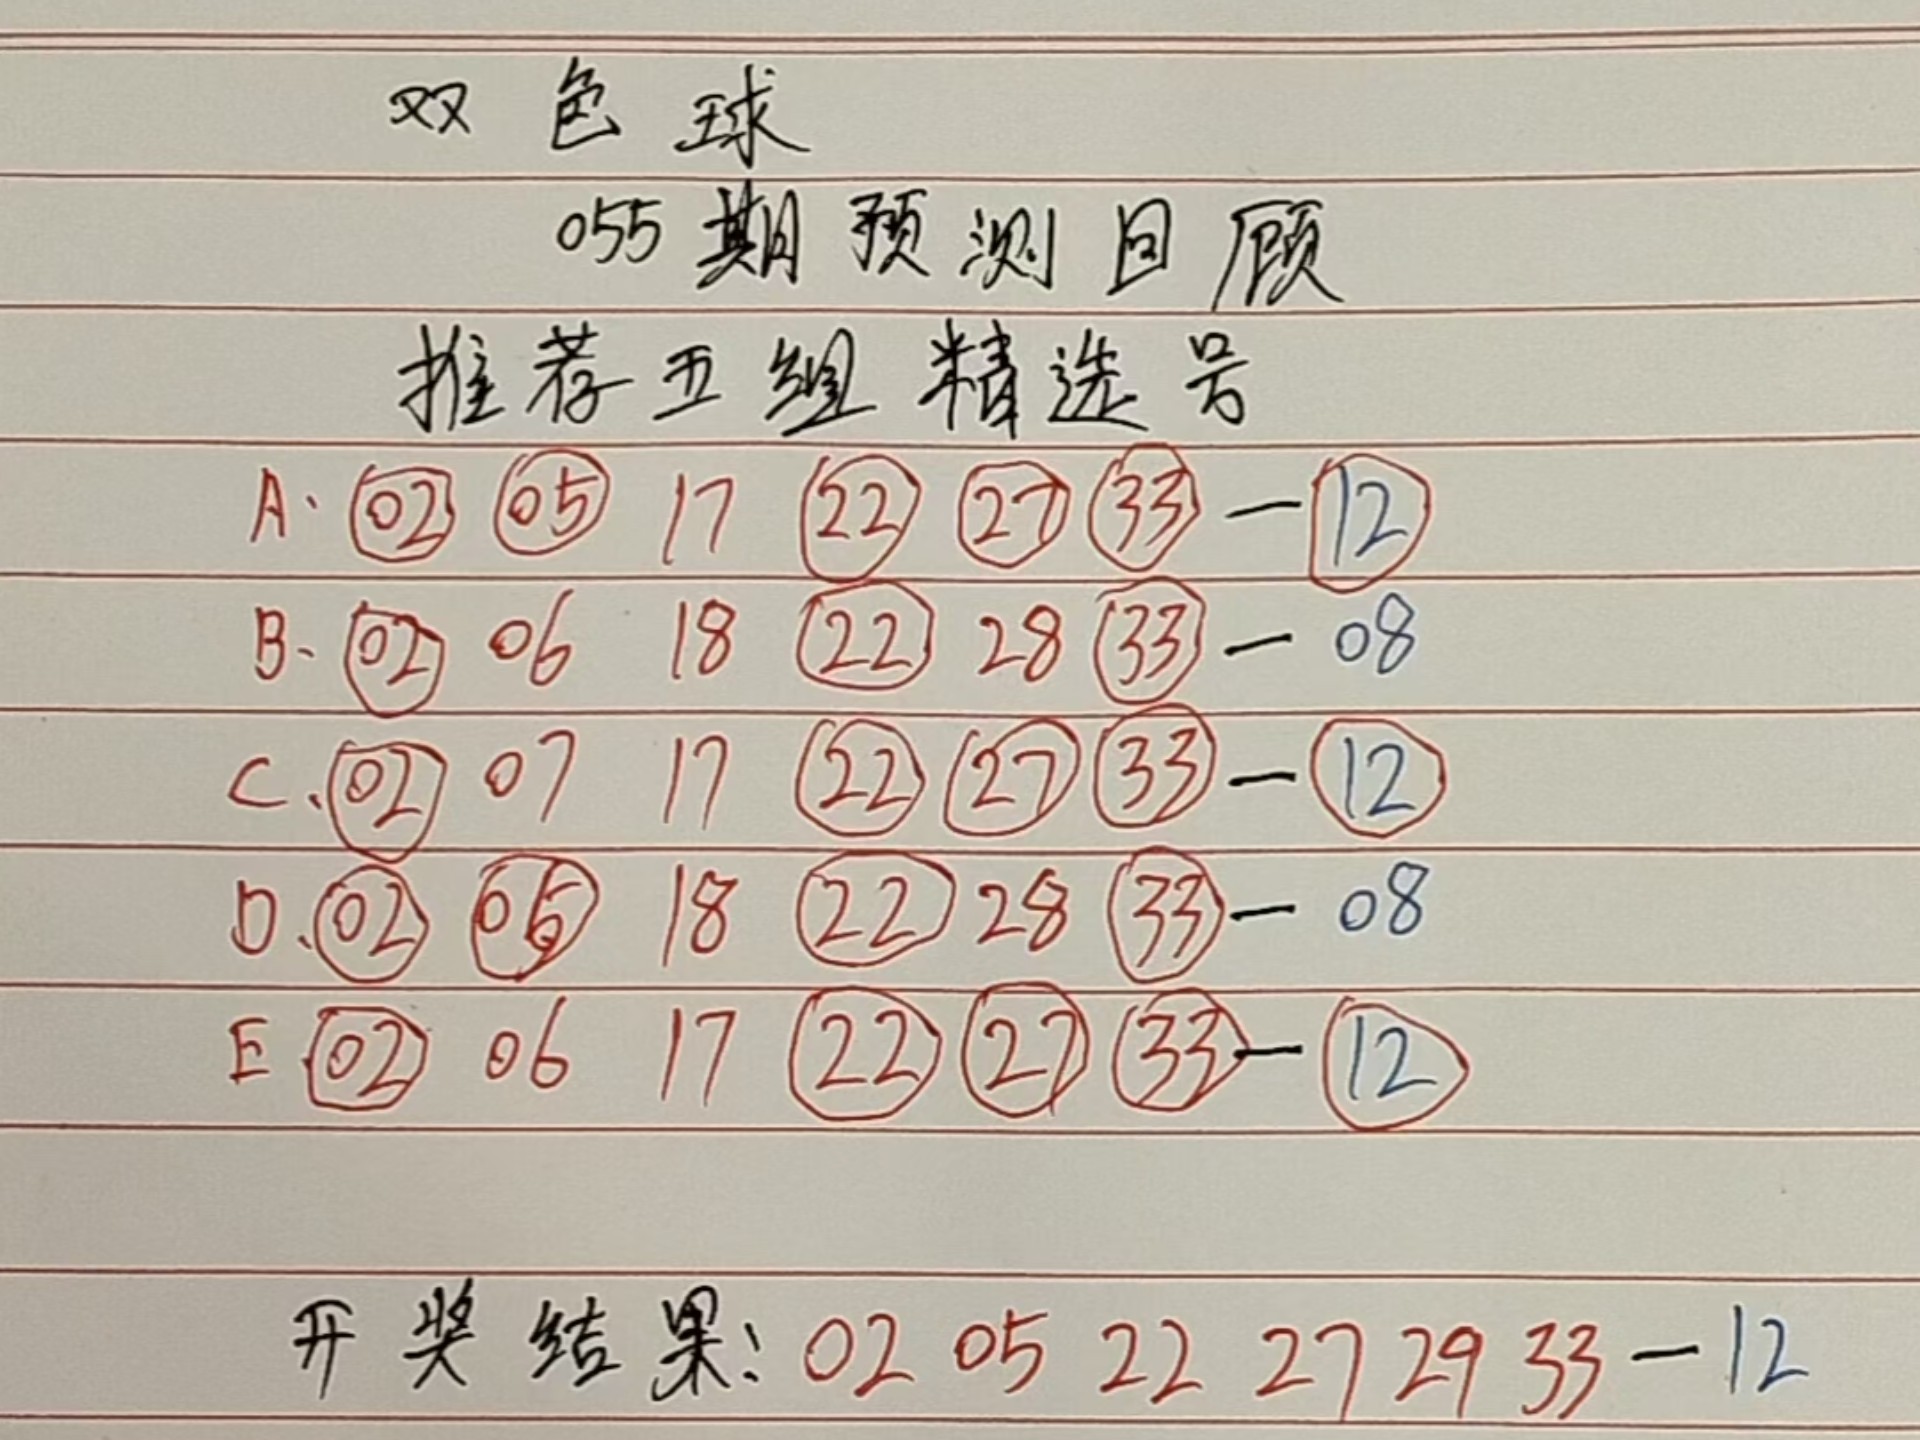 双色球
055期预测回顾
推荐五组精选号
A. 02 05 17 22 27 33 — 12
B. 02 06 18 22 28 33 — 08
C. 02 07 17 22 27 33 — 12
D. 02 05 18 22 28 33 — 08
E. 02 06 17 22 27 33 — 12
开奖结果: 02 05 22 27 29 33 — 12